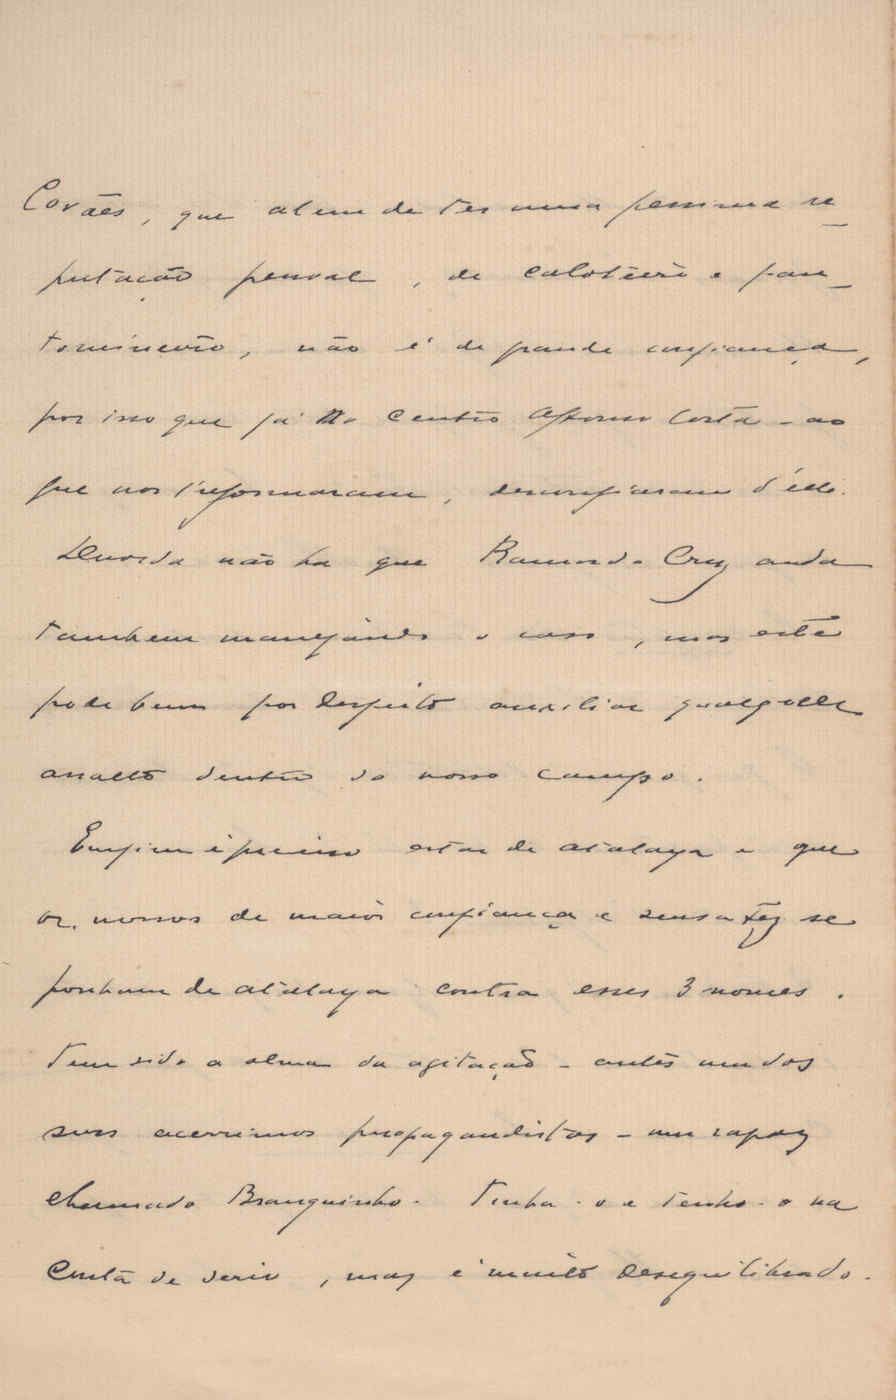 Corães, que alem de ter uma pessima re-
putação pessoal, de caloteiro e pan-
tomineiro, não é de grande confiança,
por isso que já no Centro Afonso Costa - ao
que nos informaram, desconfiaram d'ele.
Duvida não ha que Ramos da Cruz anda
tambem manejando o caso, mas este
pode bem por despeito auxiliar qualquer
assalto dentro do nosso campo.
Emfim é preciso estar de atalaya e que
os nossos de maior confiança e sensatez se
ponham de atalaya contra esses 3 nomes.
Tem sido a alma da agitação - antes um dos
seus acerrimos propagandistas - um rapaz
chamado Branquinho. Tinha-o e tenho-o na
conta de serio, mas é muito desequilibrado.